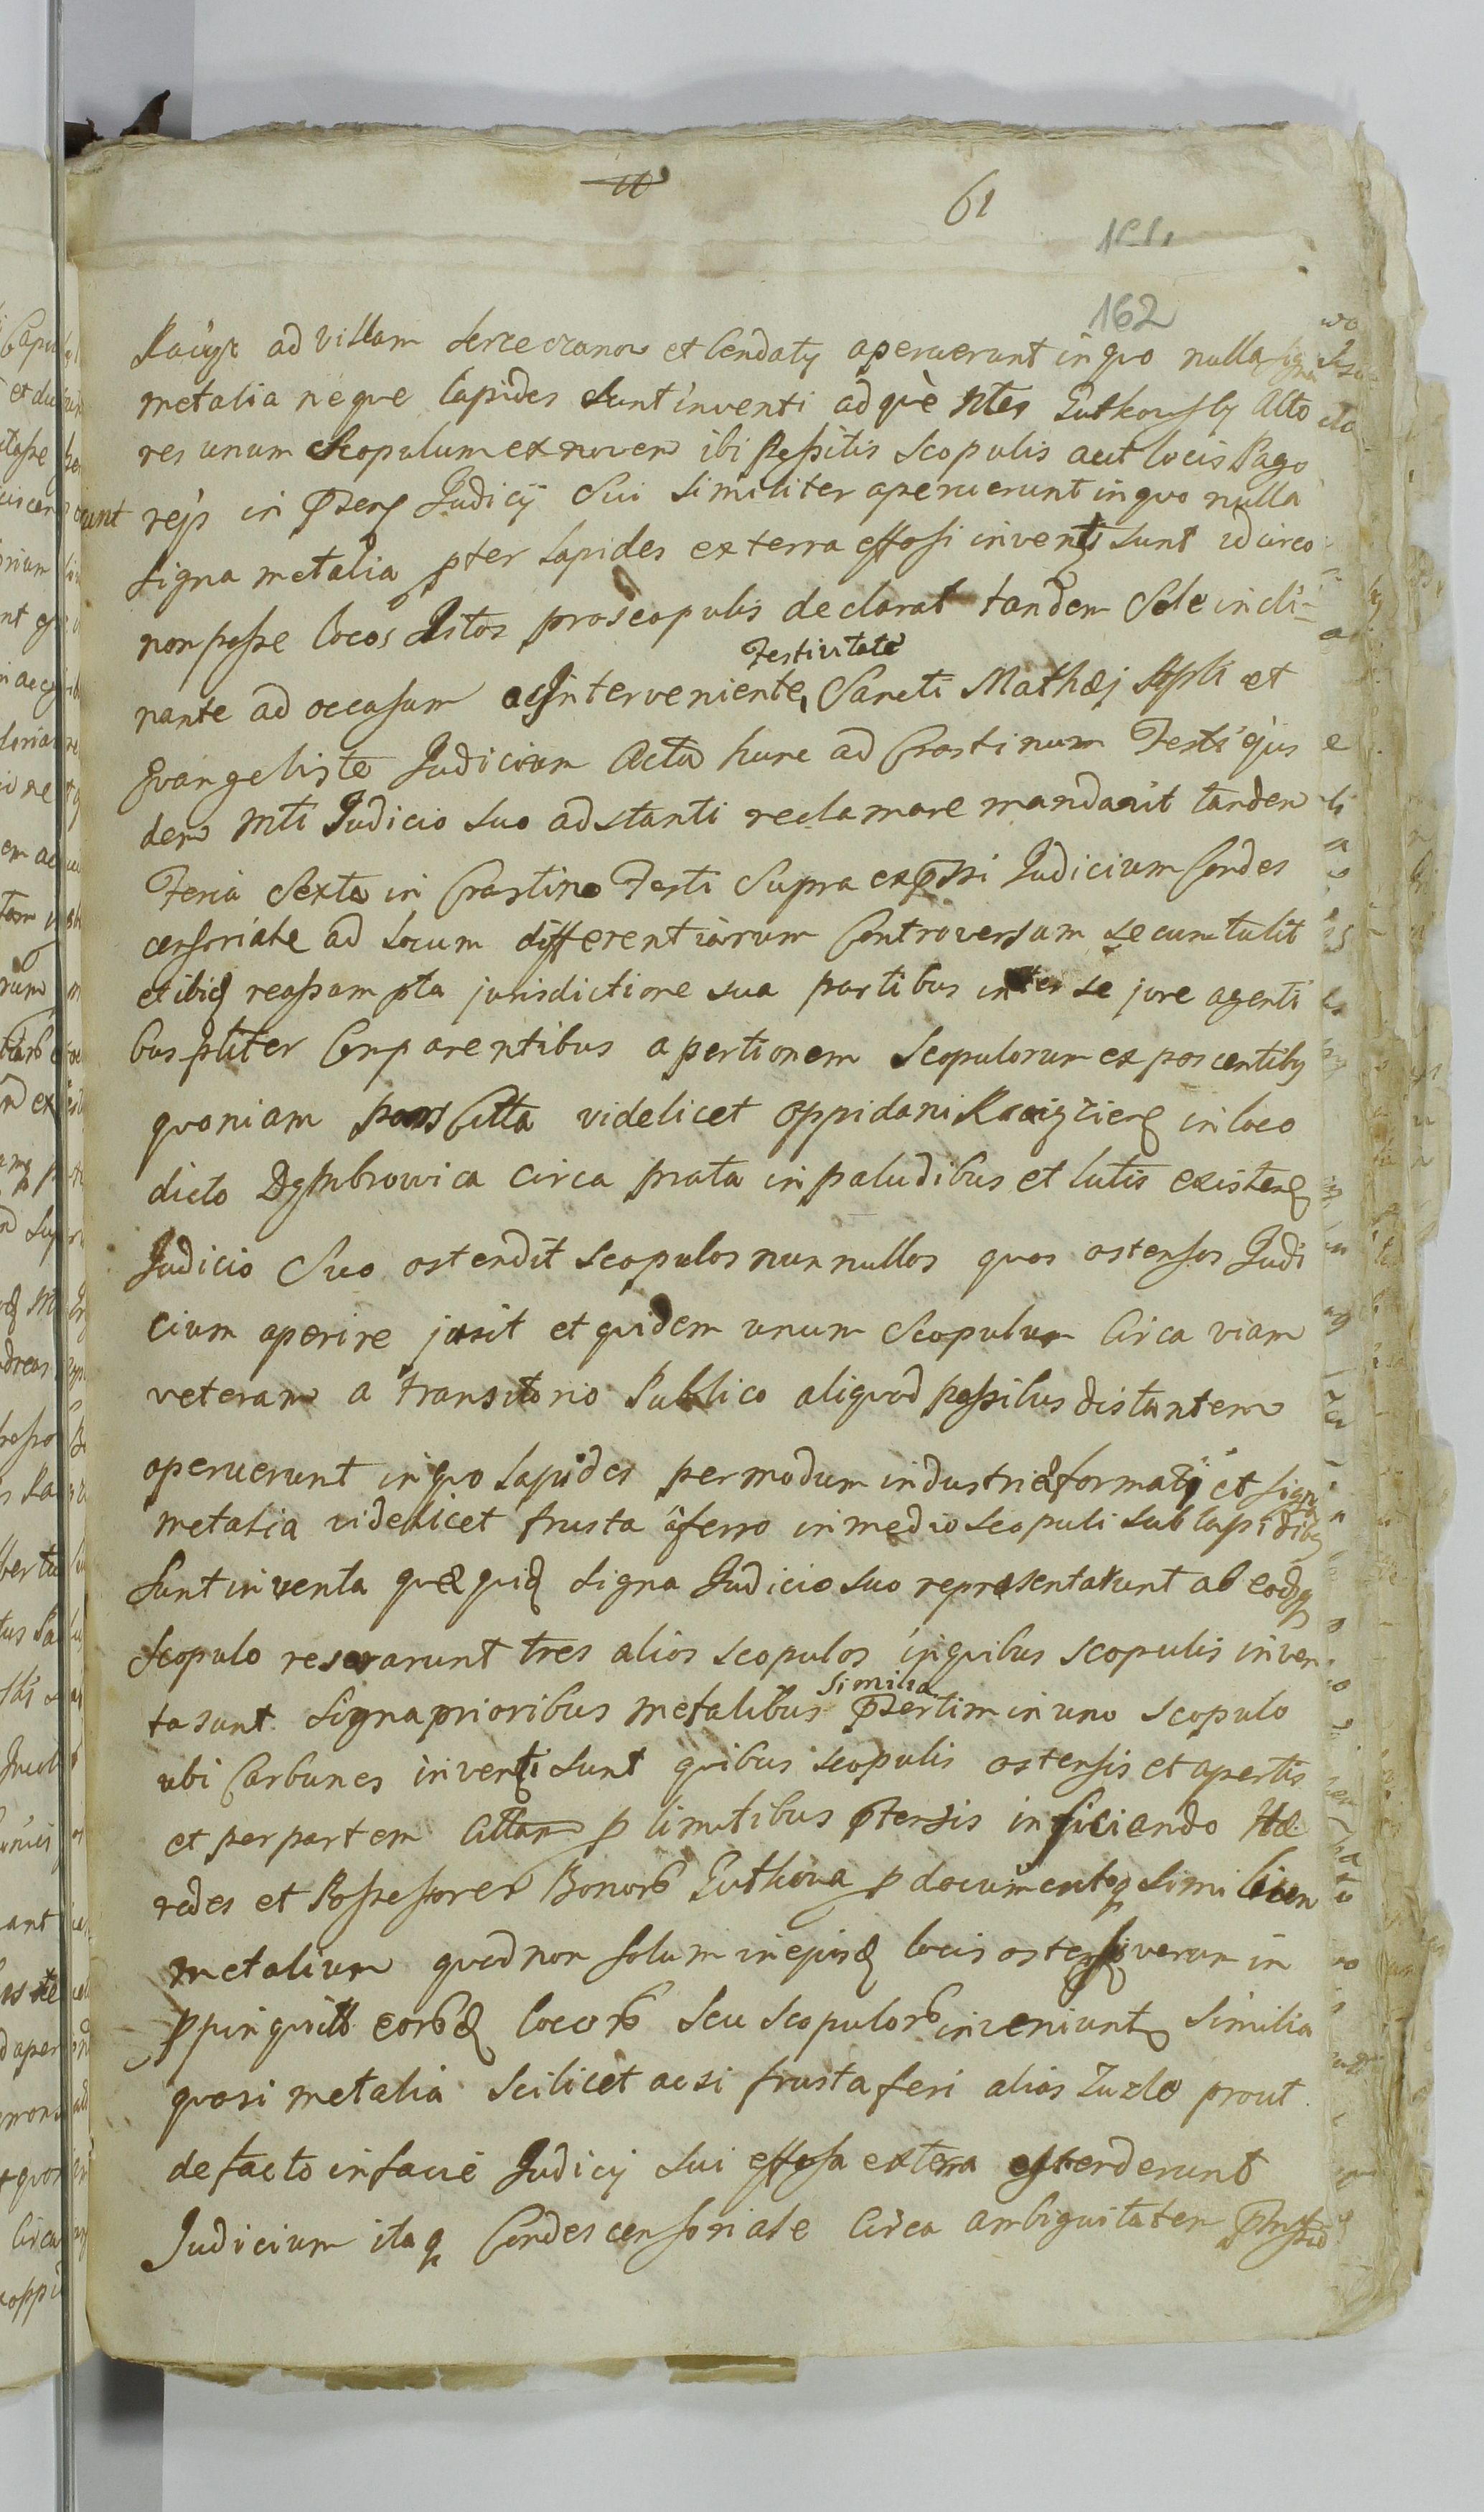 61
162
ad villam et aperuerunt in quo nulla signa
metalia neque lapides sunt inventi adquè Ntes Gutkowsky Acto
res unum Scopulum ex novem ibi positis Scopulis aut locis Pago
rejs in Judicij Sui Similiter aperuerunt in quo nulla
Signa metalia pter Lapides ex terra effosi inventi sunt idcirco
non posse locos Istos pro scopulis declarat tandem Sole incli-
nante ad occasum ac Interveniente Festivitate Sancti Mathæj Apsli et
Evangelistæ Judicium Acta hunc ad Crastinum Festi ejus
dem Mti Judicio suo adstanti reclamare mandavit tandem
Feria Sexta in Crastino Festi Supra Judicium Condes
censoriale ad Locum differentiarum Controversum se contulit
et ibiq reassumpta jurisdictione sua partibus inter se jure agenti
bus pliter Comparentibus apertionem Scopulorum exposcentibq
quoniam pars Citta videlicet oppidani in loco
dicto Dembrowica circa prata in paludibus et lutis existenq
Judicio Suo ostendit Scopulos nunnullos quos ostensos Judi
cium aperire jusit et quidem unum Scopulum Circa viam
veteram a transitorio Publico aliquod passibus distantem
aperuerunt in quo Lapides per modum industriæ formati et signa
metalia videlicet frusta a ferro in medio Scopuli sub lapidibq
Sunt inventa quæ quiq Signa Judicio suo representarunt ab eodq
Scopulo reserarunt tres alios Scopulos in quibus Scopulis inven
ta sunt Signa prioribus metalibus Similia in uno Scopulo
ubi Carbunes inventi sunt quibus scopulis ostensis et apertis
et per partem Cittam p limitibus inficiendo Hæ
redes et Possessores Bonorb Gutkowa p documento simili
metalium quod non Solum in locis verum in
ppinquitt eorbq locorb seu Scopulorb inveniuntq Similia
quasi metalia Scilicet acsi frusta feri alias Zuzle prout
de facto in facie Judicij Sui effosa ex terra ostenderunt
Judicium itaq Condescensoriale Circa ambiguitatem